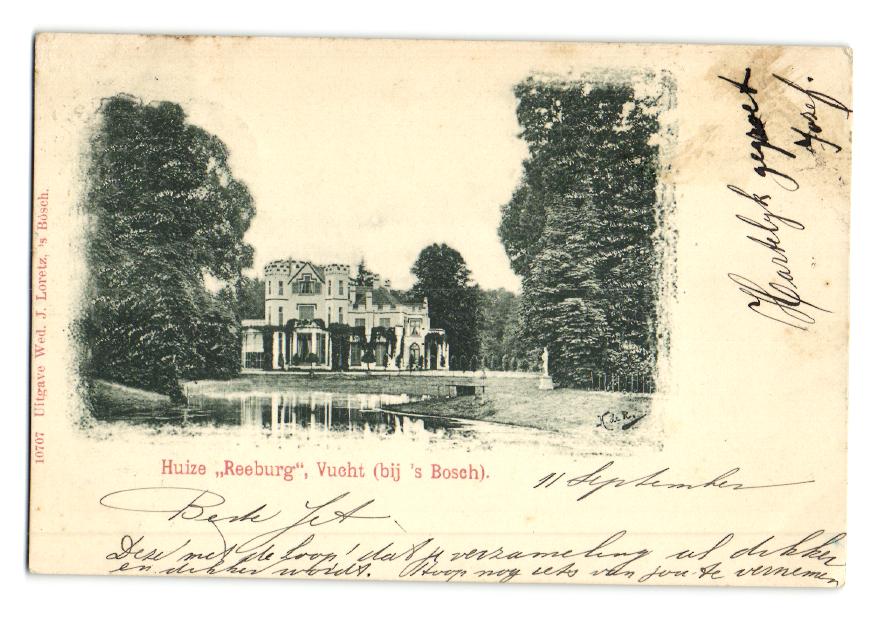 Hartelyk gegroet
Josef.
10707 Uitgave Wed. J. Loretz, 's Bosch.
H de R.
Huize „Reeburg", Vucht (bij 's Bosch).
11 September
Beste Jet
Deze met de hoop dat je verzameling al dikker
en dikker wordt. Hoop nog iets van jou te vernemen